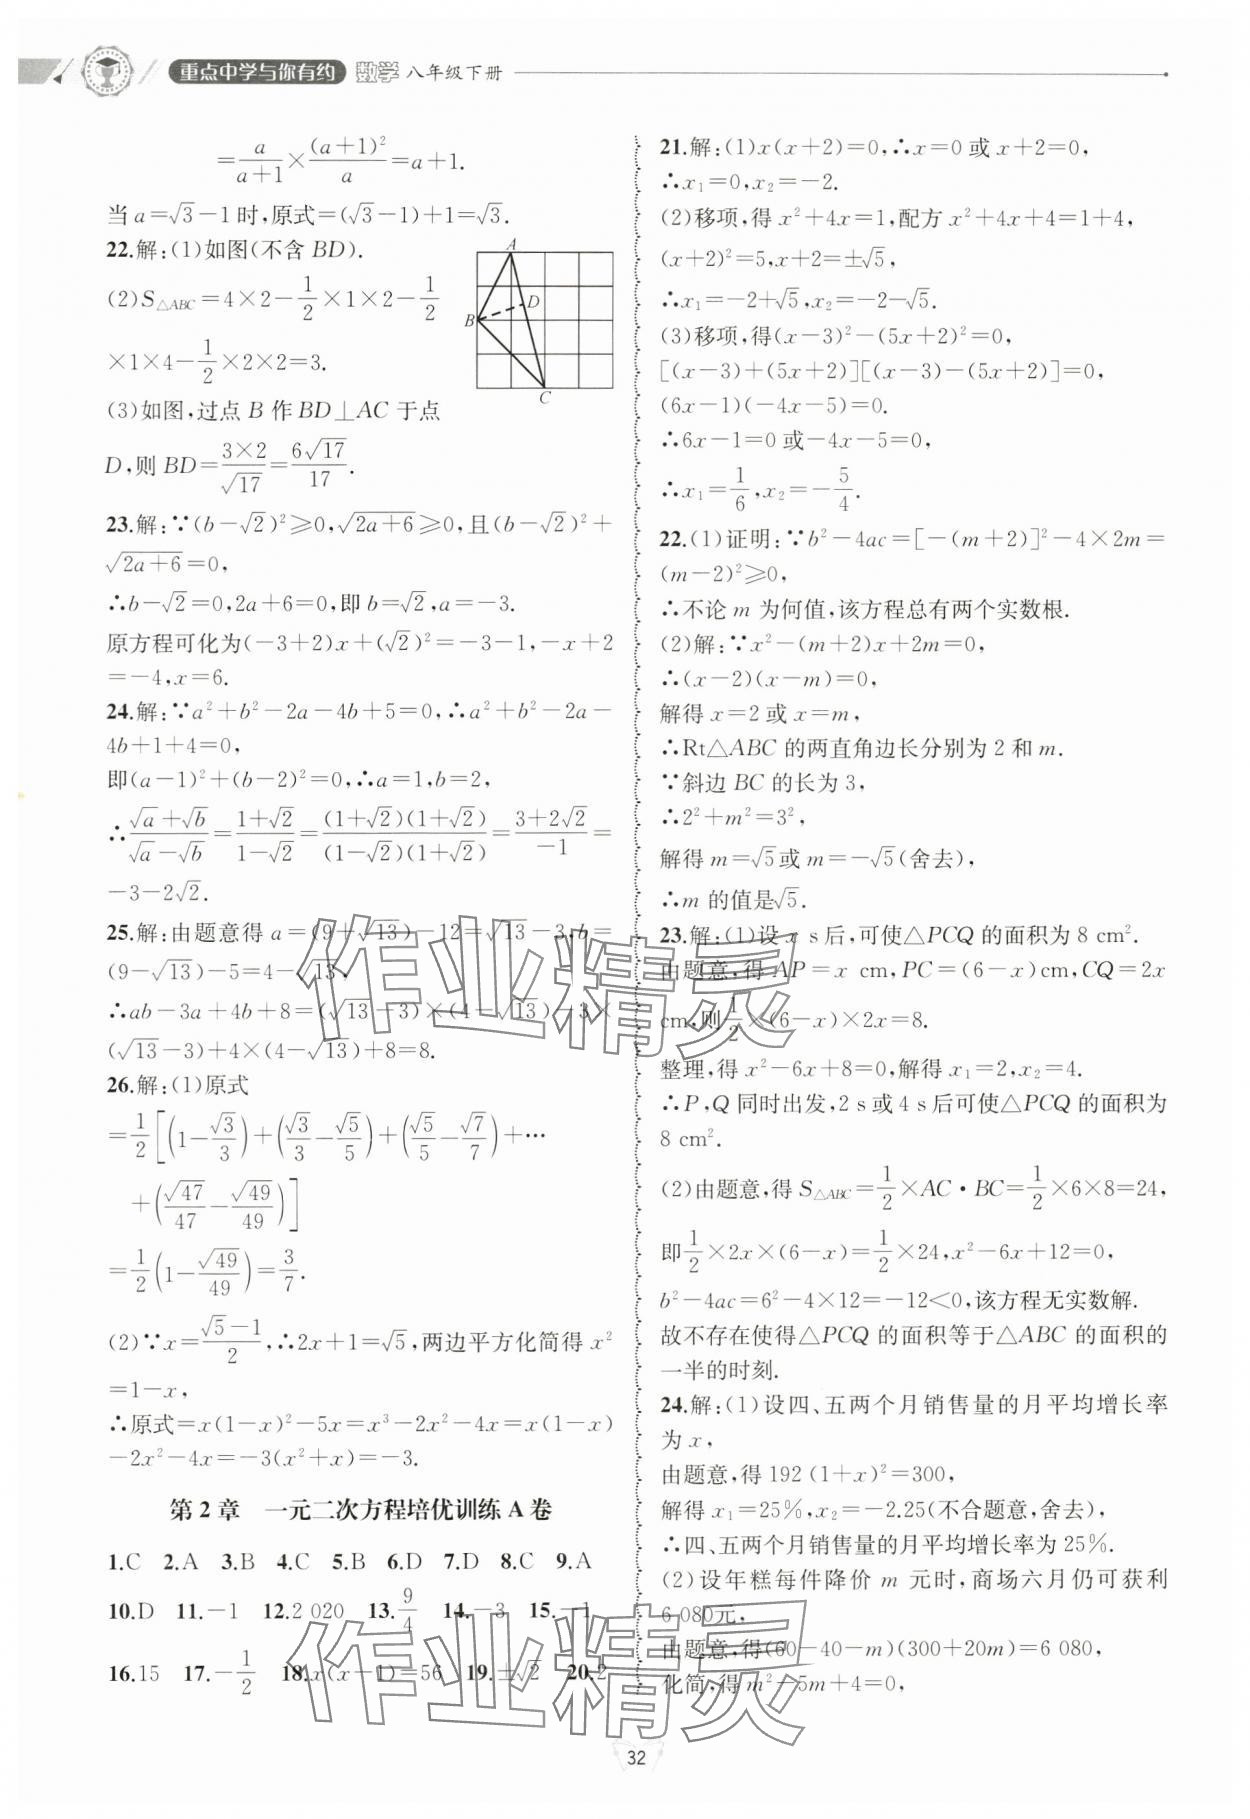 重点中学与你有约 数学 八年级下册
=a/(a+1)×(a+1)²/a=a+1.
当a=√3-1时,原式=(√3-1)+1=√3.
22.解:(1)如图(不含BD).
(2)S△ABC=4×2-1/2×1×2-1/2
×1×4-1/2×2×2=3.
(3)如图,过点B作BD⊥AC于点
D,则BD=3×2/√17=6√17/17.
A
D
B
C
23.解:∵(b-√2)²≥0,√(2a+6)≥0,且(b-√2)²+
√(2a+6)=0,
∴b-√2=0,2a+6=0,即b=√2,a=-3.
原方程可化为(-3+2)x+(√2)²=-3-1,-x+2
=-4,x=6.
24.解:∵a²+b²-2a-4b+5=0,∴a²+b²-2a-
4b+1+4=0,
即(a-1)²+(b-2)²=0,∴a=1,b=2,
∴(√a+√b)/(√a-√b)=(1+√2)/(1-√2)=(1+√2)(1+√2)/(1-√2)(1+√2)=(3+2√2)/-1=
-3-2√2.
25.解:由题意得a=(9+√13)-12=√13-3,b=
(9-√13)-5=4-√13,
∴ab-3a+4b+8=(√13-3)×(4-√13)-3×
(√13-3)+4×(4-√13)+8=8.
26.解:(1)原式
=1/2[(1-√3/3)+(√3/3-√5/5)+(√5/5-√7/7)+⋯
+(√47/47-√49/49)]
=1/2(1-√49/49)=3/7.
(2)∵x=(√5-1)/2,∴2x+1=√5,两边平方化简得x²
=1-x,
∴原式=x(1-x)²-5x=x³-2x²-4x=x(1-x)
-2x²-4x=-3(x²+x)=-3.
第2章 一元二次方程培优训练A卷
1.C 2.A 3.B 4.C 5.B 6.D 7.D 8.C 9.A
10.D 11.-1 12.2 020 13.9/4 14.-3 15.-1
16.15 17.-1/2 18.x(x-1)=56 19.±√2 20.2
21.解:(1)x(x+2)=0,∴x=0或x+2=0,
∴x₁=0,x₂=-2.
(2)移项,得x²+4x=1,配方x²+4x+4=1+4,
(x+2)²=5,x+2=±√5,
∴x₁=-2+√5,x₂=-2-√5.
(3)移项,得(x-3)²-(5x+2)²=0,
[(x-3)+(5x+2)][(x-3)-(5x+2)]=0,
(6x-1)(-4x-5)=0.
∴6x-1=0或-4x-5=0,
∴x₁=1/6,x₂=-5/4.
22.(1)证明:∵b²-4ac=[-(m+2)]²-4×2m=
(m-2)²≥0,
∴不论m为何值,该方程总有两个实数根.
(2)解:∵x²-(m+2)x+2m=0,
∴(x-2)(x-m)=0,
解得x=2或x=m,
∴Rt△ABC的两直角边长分别为2和m.
∵斜边BC的长为3,
∴2²+m²=3²,
解得m=√5或m=-√5(舍去),
∴m的值是√5.
23.解:(1)设x s后,可使△PCQ的面积为8 cm².
由题意,得AP=x cm,PC=(6-x)cm,CQ=2x
cm,则1/2×(6-x)×2x=8.
整理,得x²-6x+8=0,解得x₁=2,x₂=4.
∴P,Q同时出发,2 s或4 s后可使△PCQ的面积为
8 cm².
(2)由题意,得S△ABC=1/2×AC·BC=1/2×6×8=24,
即1/2×2x×(6-x)=1/2×24,x²-6x+12=0,
b²-4ac=6²-4×12=-12<0,该方程无实数解.
故不存在使得△PCQ的面积等于△ABC的面积的
一半的时刻.
24.解:(1)设四、五两个月销售量的月平均增长率
为x,
由题意,得192(1+x)²=300,
解得x₁=25%,x₂=-2.25(不合题意,舍去),
∴四、五两个月销售量的月平均增长率为25%.
(2)设年糕每件降价m元时,商场六月仍可获利
6 080元,
由题意,得(60-40-m)(300+20m)=6 080,
化简,得m²-5m+4=0,
作业精灵
作业精灵
32